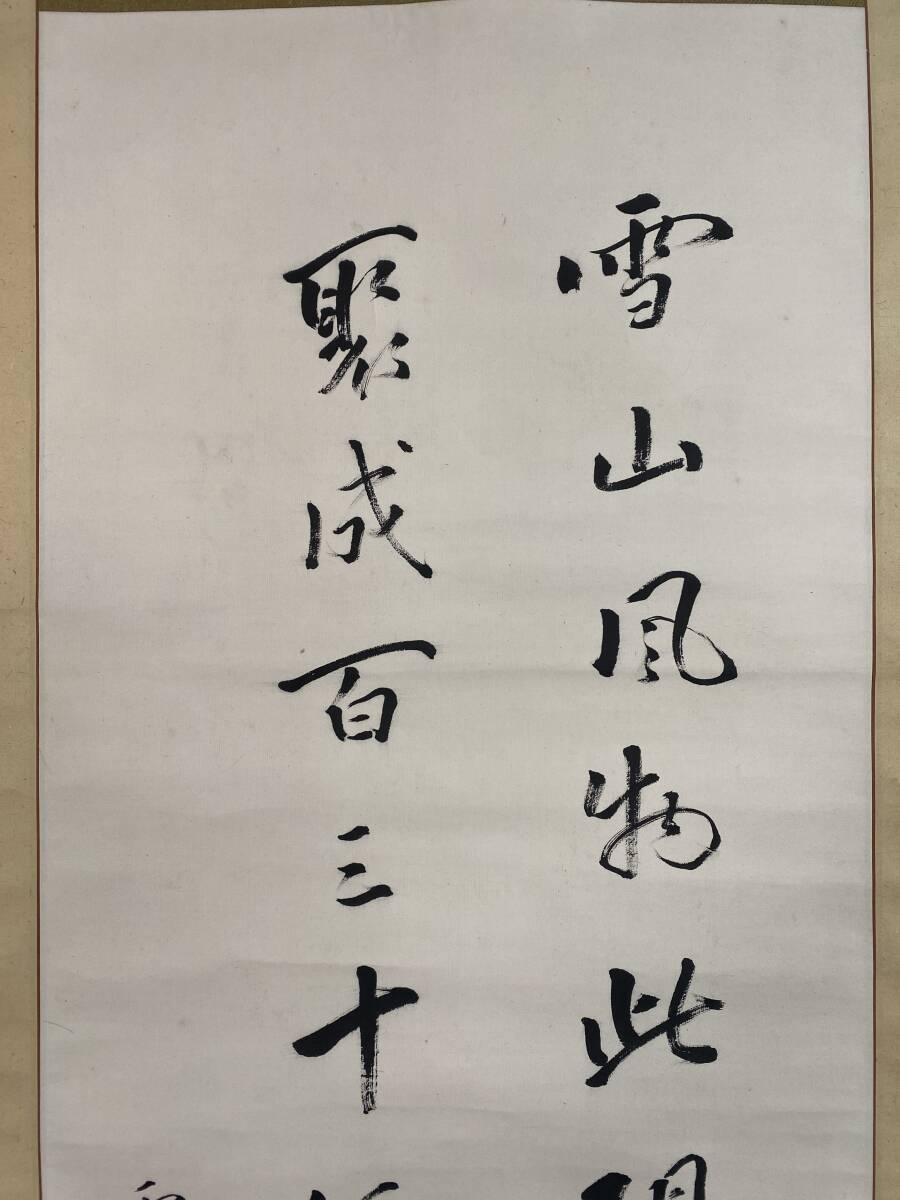 雪山風物此
聚成百三十